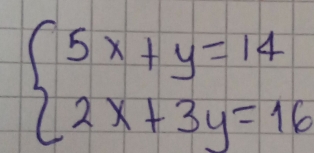 5x+y=14
2x+3y=16